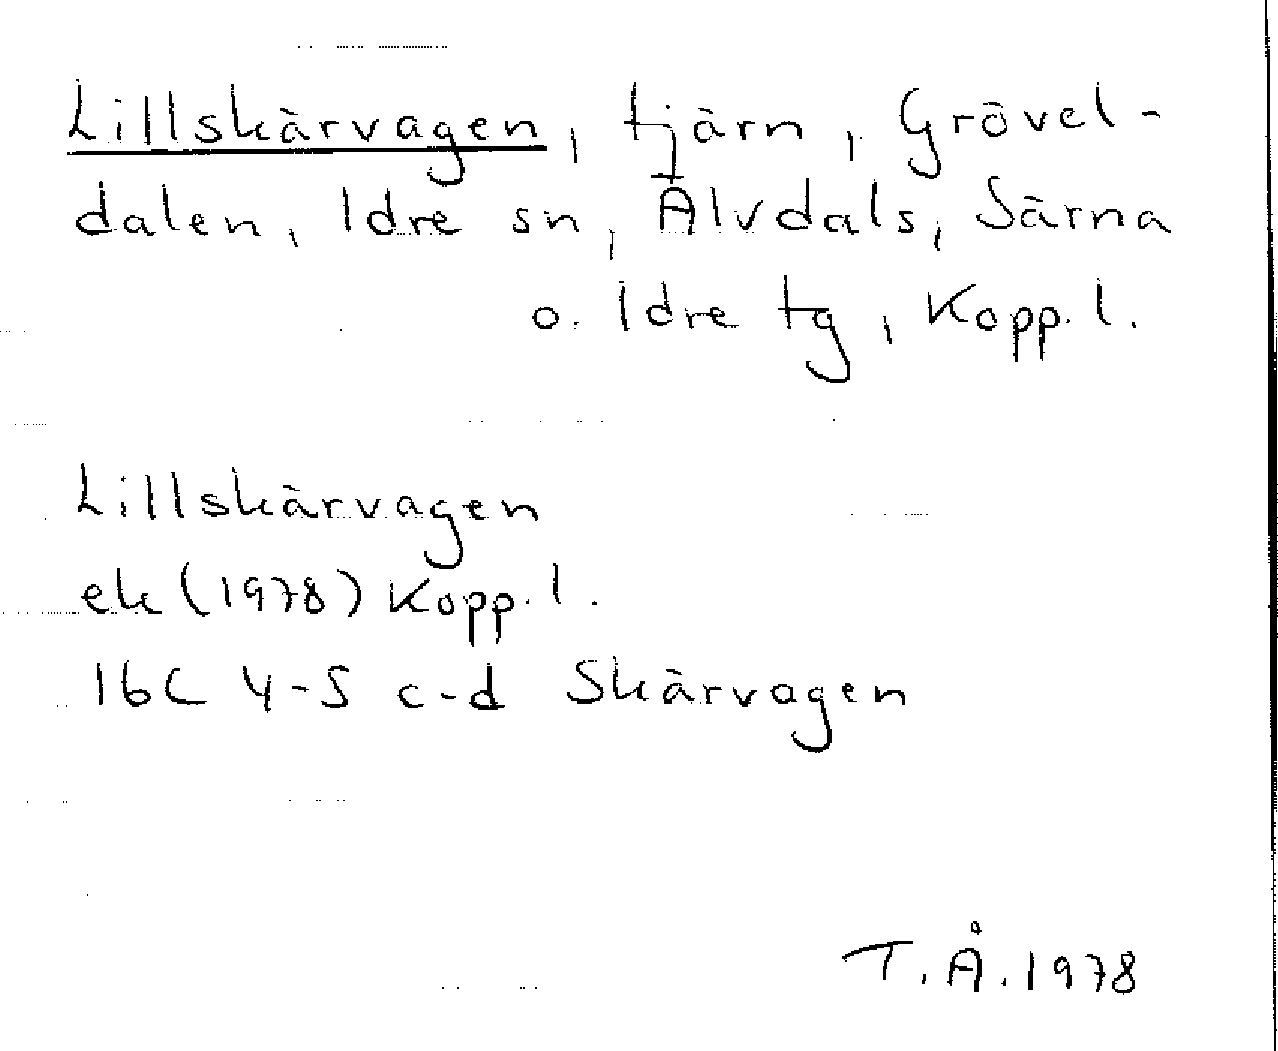 Lillskärvagen, tjärn, Grövel-
dalen, Idre sn, Älvdals, Särna
o. Idre tg, Kopp. l.
Lillskärvagen
ek (1978) Kopp. l.
16C 4-5 c-d Skärvagen
T.Å. 1978